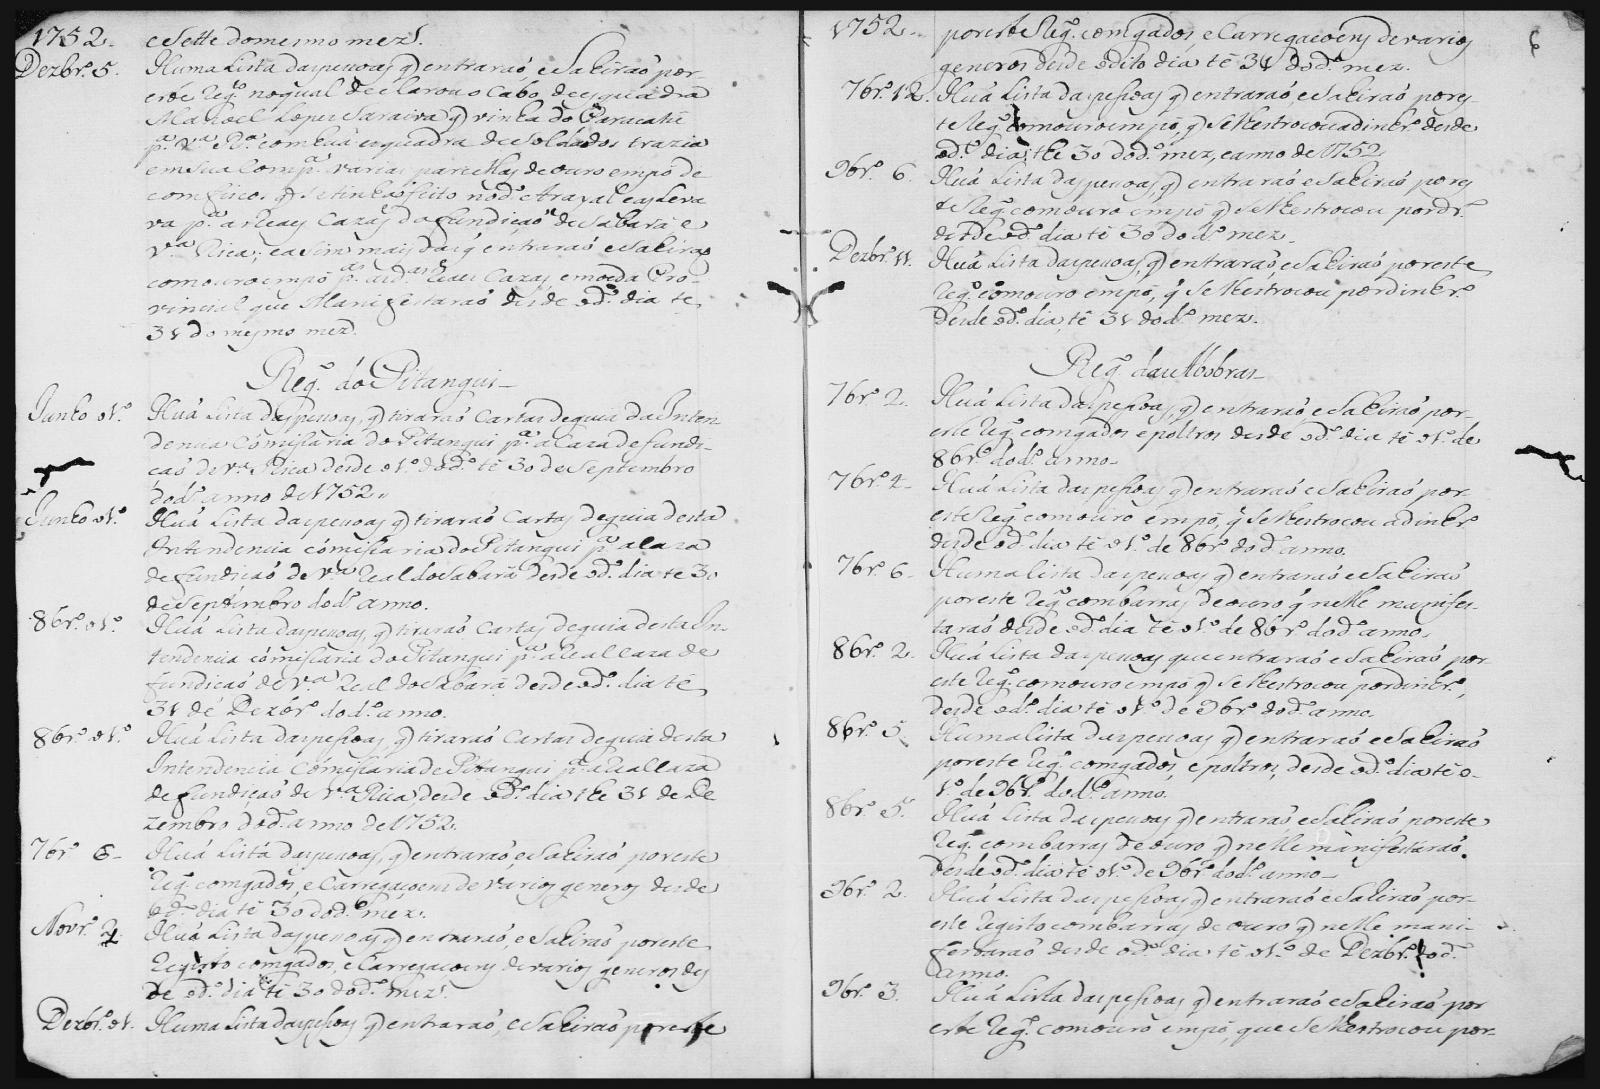 1752. e Sette do mesmo mez.
Dezbr.º 5. Huma Lista daspessoas q̃ entraraó, e Sahiraó por
este Reg.º no qual declarou o Cabo de esquadra
Manoel Lopes Saraiva q̃ vinha do Paracatú
p.ª V.ª R.ª com hũa esquadra de Soldados trazia
em Sua Comp.ª varias parcellas de ouro empó de
comfisco, q̃ se tinha feito no d.º Arayal easleva
va p.ª as Reaes Cazas dafundiçaõ de Sabará, e
V.ª Rica; e asim mais das q̃ entraraó e Sahiraó
com ouro empó p.ª as d.as Reaes Cazas, e moeda Pro-
vincial que Manifestaraó desde o d.º dia te
31 do mesmo mez.
Reg.º do Pitangui
Junho o 1.º Huá Lista daspessoas, q̃ tiraraó Cartas deguia da Inten
dencia Comisaria do Pitangui p.ª a Caza de fundi-
çaó de V.ª Rica desde o 1.º do d.º té 30 de Septembro
do d.º anno de 1752
Junho o 1.º Huá Lista daspessoas q̃ tiraraó Cartas deguia desta
Intendencia cómisaria do Pitangui p.ª a Caza
de fundiçaó de V.ª Real do Sabará desde o d.º dia te 30
de Septembro do d.º anno.
8br.º o 1.º Huá Lista daspessoas, q̃ tiraraó Cartas deguia desta In-
tendencia cómisaria do Pitangui p.ª a Real Caza de
fundicaó de V.ª Real do Sabará desde o d.º dia té
31 de Dezbr.º do d.º anno.
8br.º o 1.º Huá Lista daspessoas, q̃ tiraraó Cartas deguia desta
Intendencia Comisaria de Pitangui p.ª a Real Caza
de fundiçaó de V.ª Rica, desde o d.º dia the 31 de De
zembro do d.º anno de 1752.
7br.º 6 Huá Listá daspessoas, q̃ entraraó e Sahiraó poreste
Reg.º comgados, e Carregacoens de varios generos desde
o d.º dia té 30 do d.º mez.
Novr.º 2 Huá Lista daspessoas q̃ entraraó, e Sahiraó poreste
Registo comgados, e Carregacoens devarios generos des
de o d.º dia té 30 do d.º mez.
Dezbr.º o 1. Huma Lista daspessoas q̃ entraraó, e Sahiraó poreste
1752. poreste Reg.º comgados, e Carregacoens de varios
generos desde o dito dia té 31 do d.º mez.
7br.º 12. Huá Lista daspessoas q̃ entraraó e Sahiraó pores-
te Reg.º com ouro empó, q̃ Selhestrocou a dinhr.º desde
o d.º dia; the 30 do d.º mez, e anno de 1752
9br.º 6. Huá Lista daspessoas, q̃ entraraó e Sahiraó pores
te Reg.º com ouro empó q̃ Selhestrocou por dr.º
desde o d.º dia té 30 do d.º mez.
Dezbr.º 11. Huá Lista daspessoas, q̃ entraraó e Sahiraó poreste
Reg.º com ouro empó, q̃ Selhestrocou pordinhr.º
desde o d.º dia, té 31 do d.º mez.
Reg.º das Abobras
7br.º 2. Huá Lista daspessoas, q̃ entraraó e Sahiraó por-
este Reg.º comgados e poltros desde o d.º dia té o 1.º de
8br.º do d.º anno
7br.º 4 Huá Lista daspessoas q̃ entraraó e Sahiraó por-
este Reg.º com ouro empó, q̃ Selhestrocou adinhr.º
desde o d.º dia té o 1.º de 8br.º do d.º anno.
7br.º 6 Huma lista daspessoas q̃ entraraó e Sahiraó
poreste Reg.º combarras de ouro q̃ nelle manifes-
taraó desde o d.º dia té o 1.º de 8br.º do d.º anno.
8br.º 2. Huá Lista daspessoas que entraraó e Sahiraó por
este Reg.º com ouro empó q̃ Selhestrocou pordinhr.º,
desde o d.º dia té o 1.º de 9br.º do d.º anno.
8br.º 5. Huma lista daspessoas q̃ entraraó e Sahiraó
poreste Reg.º comgados, e poltros, desde o d.º dia té o
1.º de 9br.º do d.º anno.
8br.º 5. Huá Lista daspessoas q̃ entraraó e Sahiraó poreste
Reg.º combarras de ouro q̃ nelle manifestaraó,
desde o d.º dia té o 1.º de 9br.º do d.º anno
9br.º 2. Huá Lista daspessoas q̃ entraraó e Sahiraó por-
este registo combarras de ouro q̃ nelle mani-
festaraó desde o d.º dia té o 1.º de Dezbr.º do d.º
anno.
9br.º 3. Huá Lista daspessoas q̃ entraraó e Sahiraó por
este Reg.º com ouro empó, que Selhestrocou por-